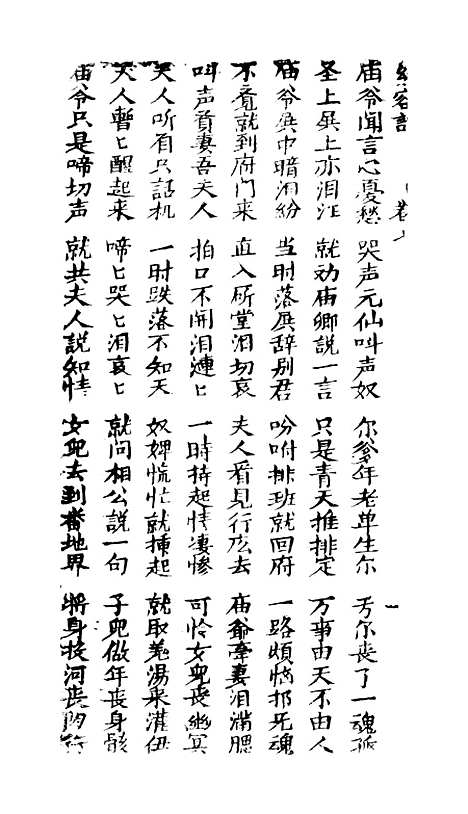 庙爷闻言心憂愁 哭声元仙叫声奴 尔爹年老单生尔 亏尔丧了一魂孤
圣上殿上亦泪汪 就劝庙卿説一言 只是青天推排定 万事由天不由人
庙爷展巾暗泪紛 当时落殿辞别君 吩咐排班就回府 一路煩恼死魂
不覚就到府门来 直入厛堂泪切哀 夫人看見行応去 庙爺牽妻泪滿腮
叫声賢妻吾夫人 拍口不開泪連匕 一時持起情凄慘 可怜女兒丧幽冥
夫人听有只話机 一时跌落不知天 奴婢慌忙就揰起 就取羗湯来灌伊
夫人暫匕醒起来 啼匕哭匕泪哀匕 就问相公説一句 子兒做年丧身骸
庙爷只是啼切声 就共夫人説知情 女兒去到番地界 將身投河丧